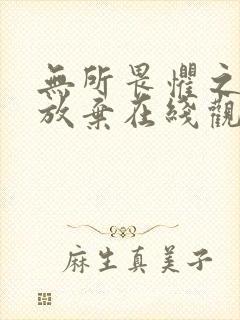 無所畏懼之
放棄在綫觀
麻生真美子